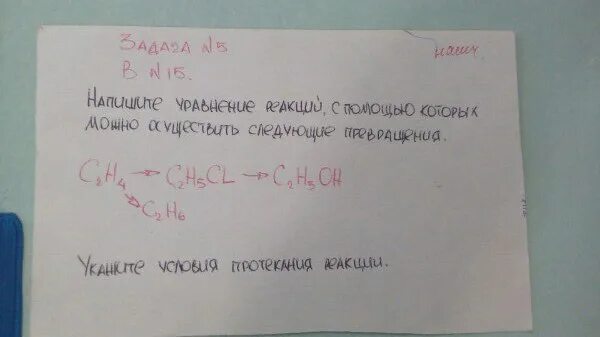 ЗАДАЧА №5
В №15.
НАПИШИТЕ УРАВНЕНИЕ РЕАКЦИЙ, С ПОМОЩЬЮ КОТОРЫХ
МОЖНО ОСУЩЕСТВИТЬ СЛЕДУЮЩИЕ ПРЕВРАЩЕНИЯ.
C₂H₄ → C₂H₅CL → C₂H₅OH
↘ C₂H₆
УКАЖИТЕ УСЛОВИЯ ПРОТЕКАНИЯ РЕАКЦИИ.